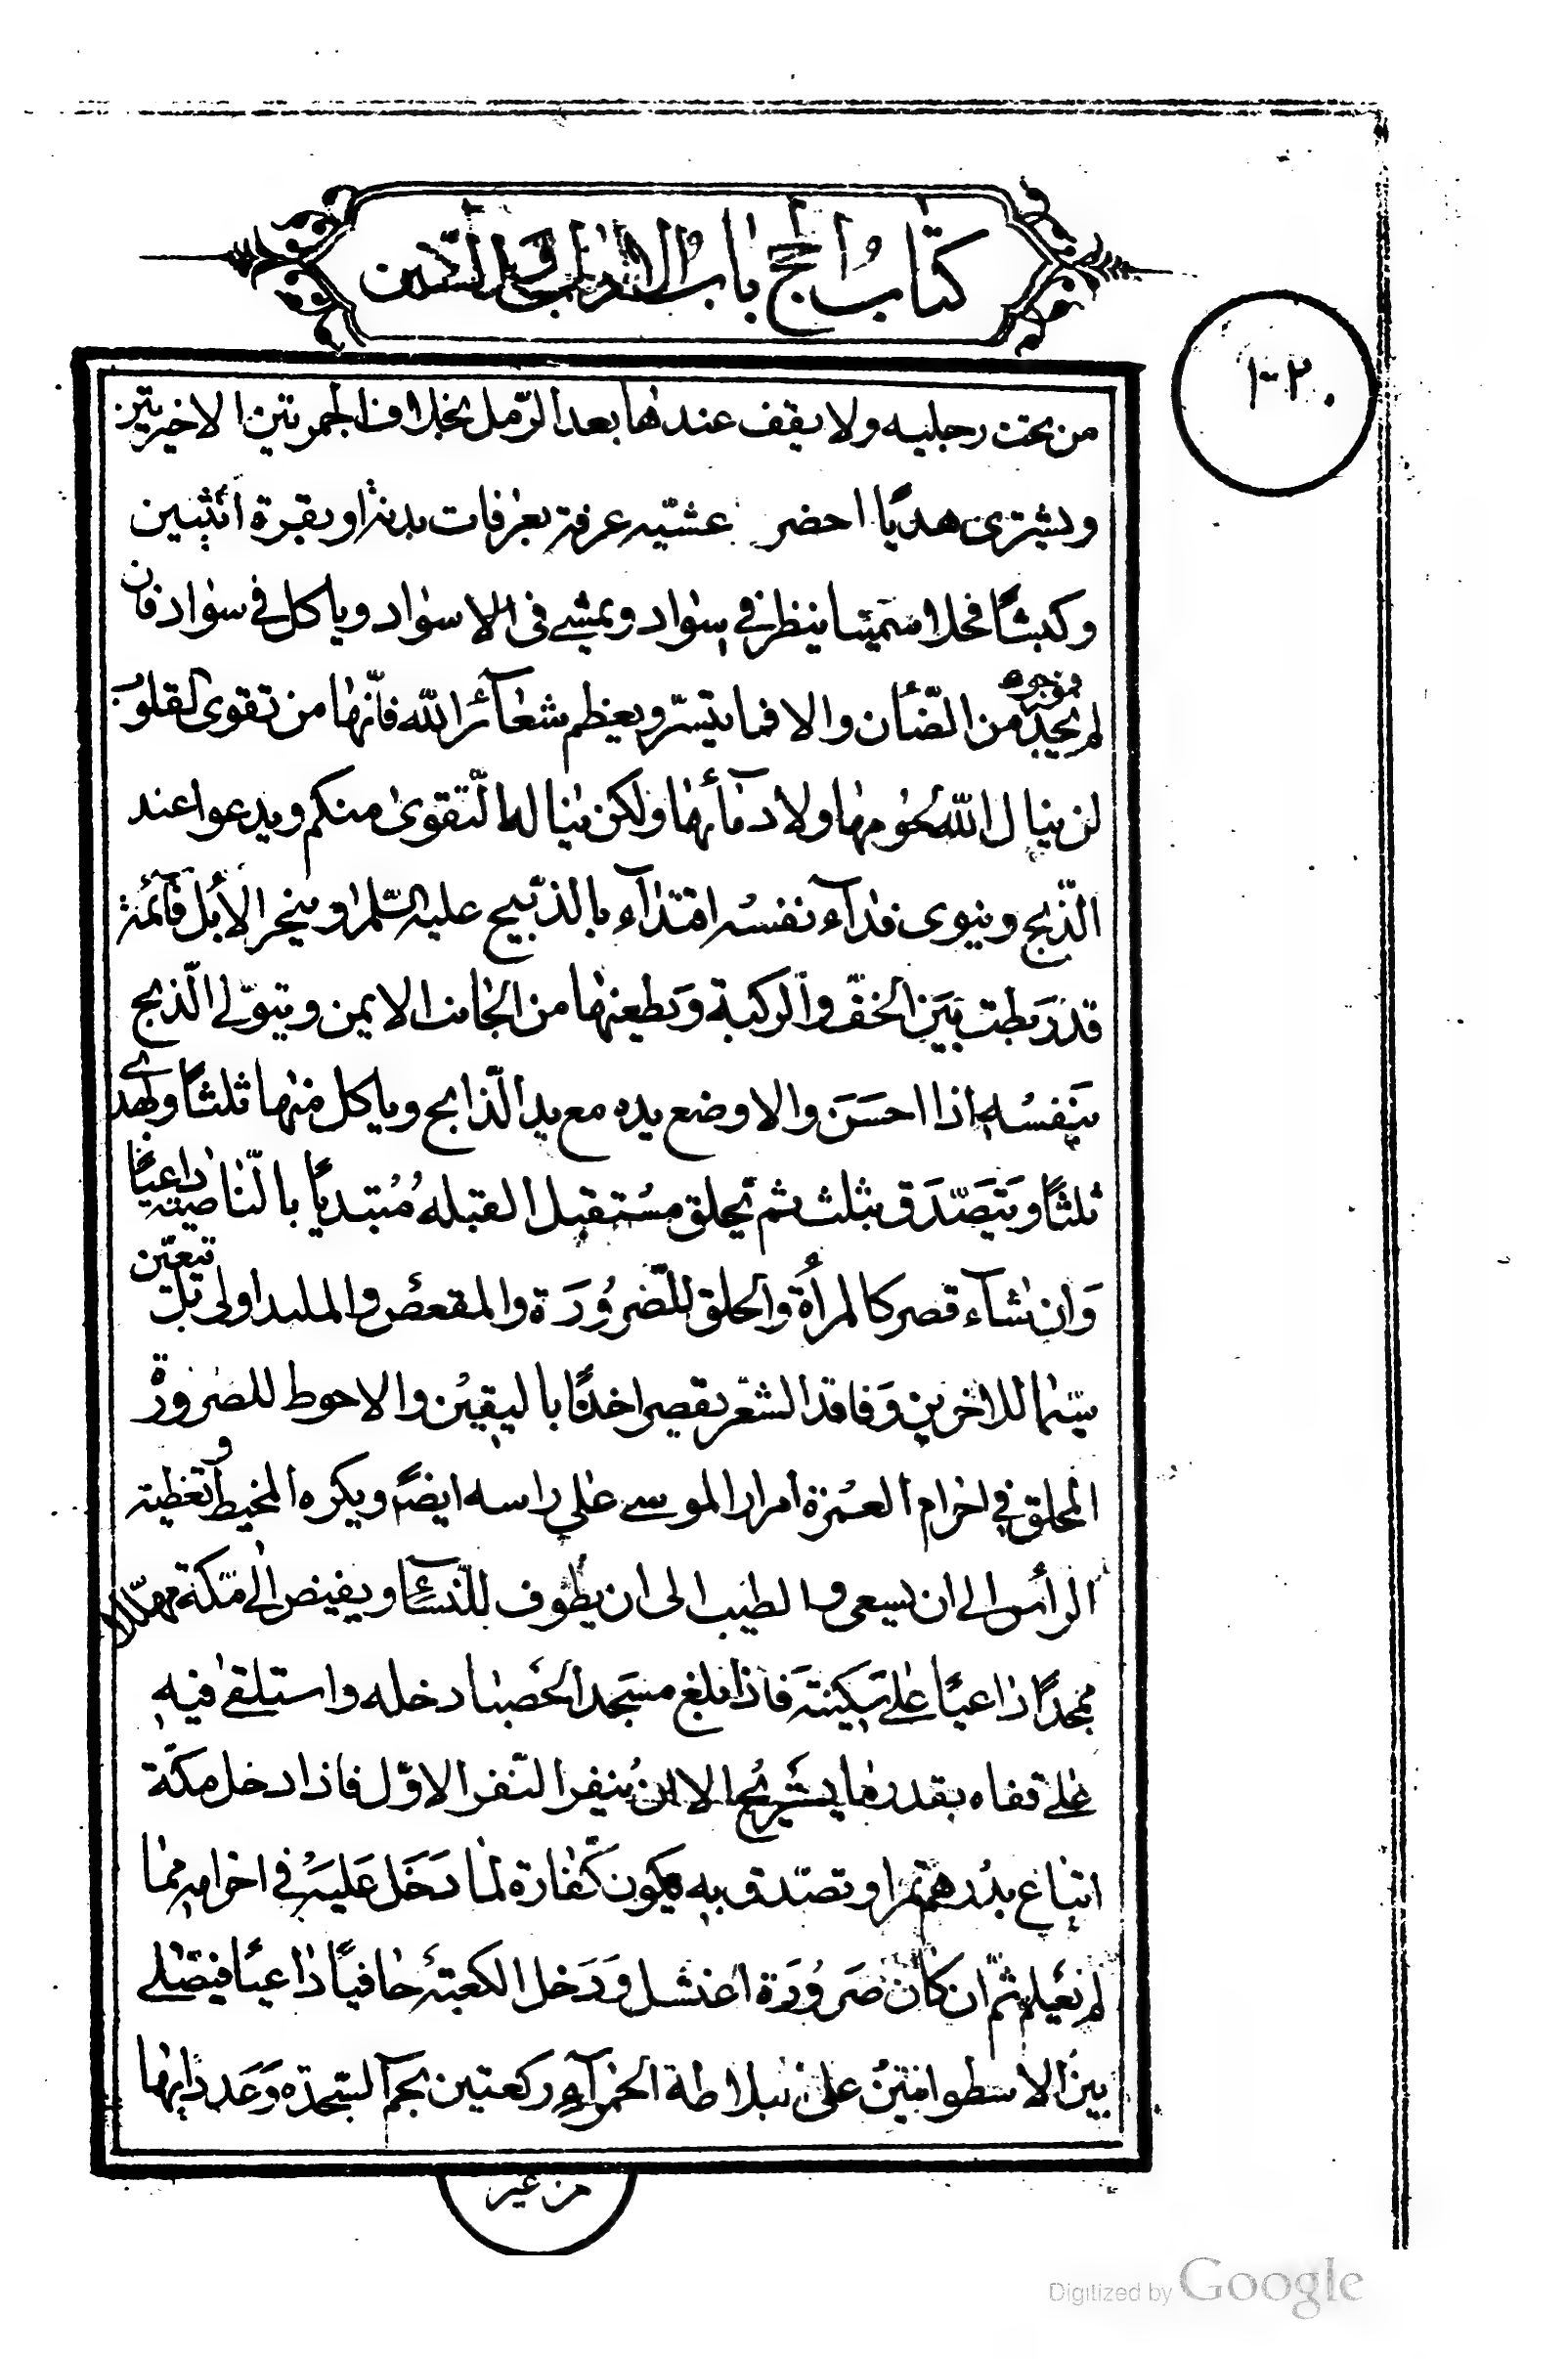 كتاب الحج باب الاداب والسنن
١٠٢٠
من تحت رجليه ولا يقف عندها بعد الرّمل بخلاف الجمرتين الاخيرتين
ويشترى هديًا احضر عشيّة عرفة بعرفات بدنة او بقرة انثيين
وكبشًا فحلا سَمينا ينظر في سواد ويمشي فى الاسواد وياكل في سواد فان
لم يجد موجوء من الضّأن والا فما تيسّر ويعظم شعآئر الله فانّها من تقوى القلوب
لن ينال الله لحُومها ولا دمآئها ولكن يناله التّقوى منكم ويدعوا عند
الذّبح وينوى فدآء نفسه اقتدآء بالذبيح عليه السّلم او ينحر الأبل قآئمة
قد رَبطت بَين الخفّ والركبة وَيطعنها من الجانب الايمن ويتولّى الذبح
بنَفسُه اذا احسَنَ والا وضع يده مع يد الذّابح وياكل منها ثلثًا ويهدي
ثلثًا ويَتصَّدَق بثلث ثم يحلق مُستقبل القبله مُبتديًا بالنّاصية داعيًا
وَان شآء قصر كالمرأة والحلق للصّرُورَة والمقعص والملبد اولى بل تيعّن
سيّما للاخرين وَفاقد الشعر يقصر اخذًا باليقين والاحوط للصرورة
المحلق في احرام العمرة امرار الموسى على راسه ايضًا ويكره المخيط وتغطية
الرأس الى ان يسعى والطيب الى ان يطوف للنّسآء ويفيض الى مكة مهلّلا
ممجدًا داعيًا على سَكينة فاذا بلغ مسَجد الحَصبا دخله واستلقى فيه
على قفاه بقدر ما يستريح الا ان ينفر النّفر الاوّل فاذا دخل مكّة
ابتاع بدرهم تمرا وتصّدق به ليكون كفّارة لما دَخَل عَليَه في احرامه مما
لم يعلم ثمّ ان كان صَرُورَة اغتسل وَدَخل الكعبة حافيًا داعيًا فيصلى
بين الاسطوانتين على البلاطة الحمرآء ركعتين بحم السّجدة وَعَدد ايها
من غير
Digitized by Google